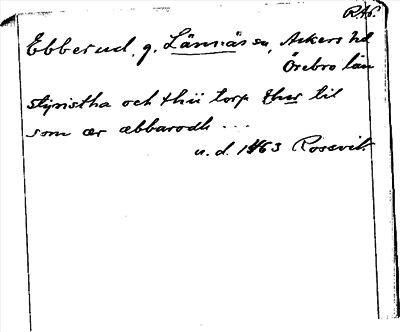 RAP.
Ebberud, g. Lännäs sn, Askers hd
Örebro län
stynistha och thii torp thus til
som ær æbbarodh ...
u. d. 1463 Rosevik